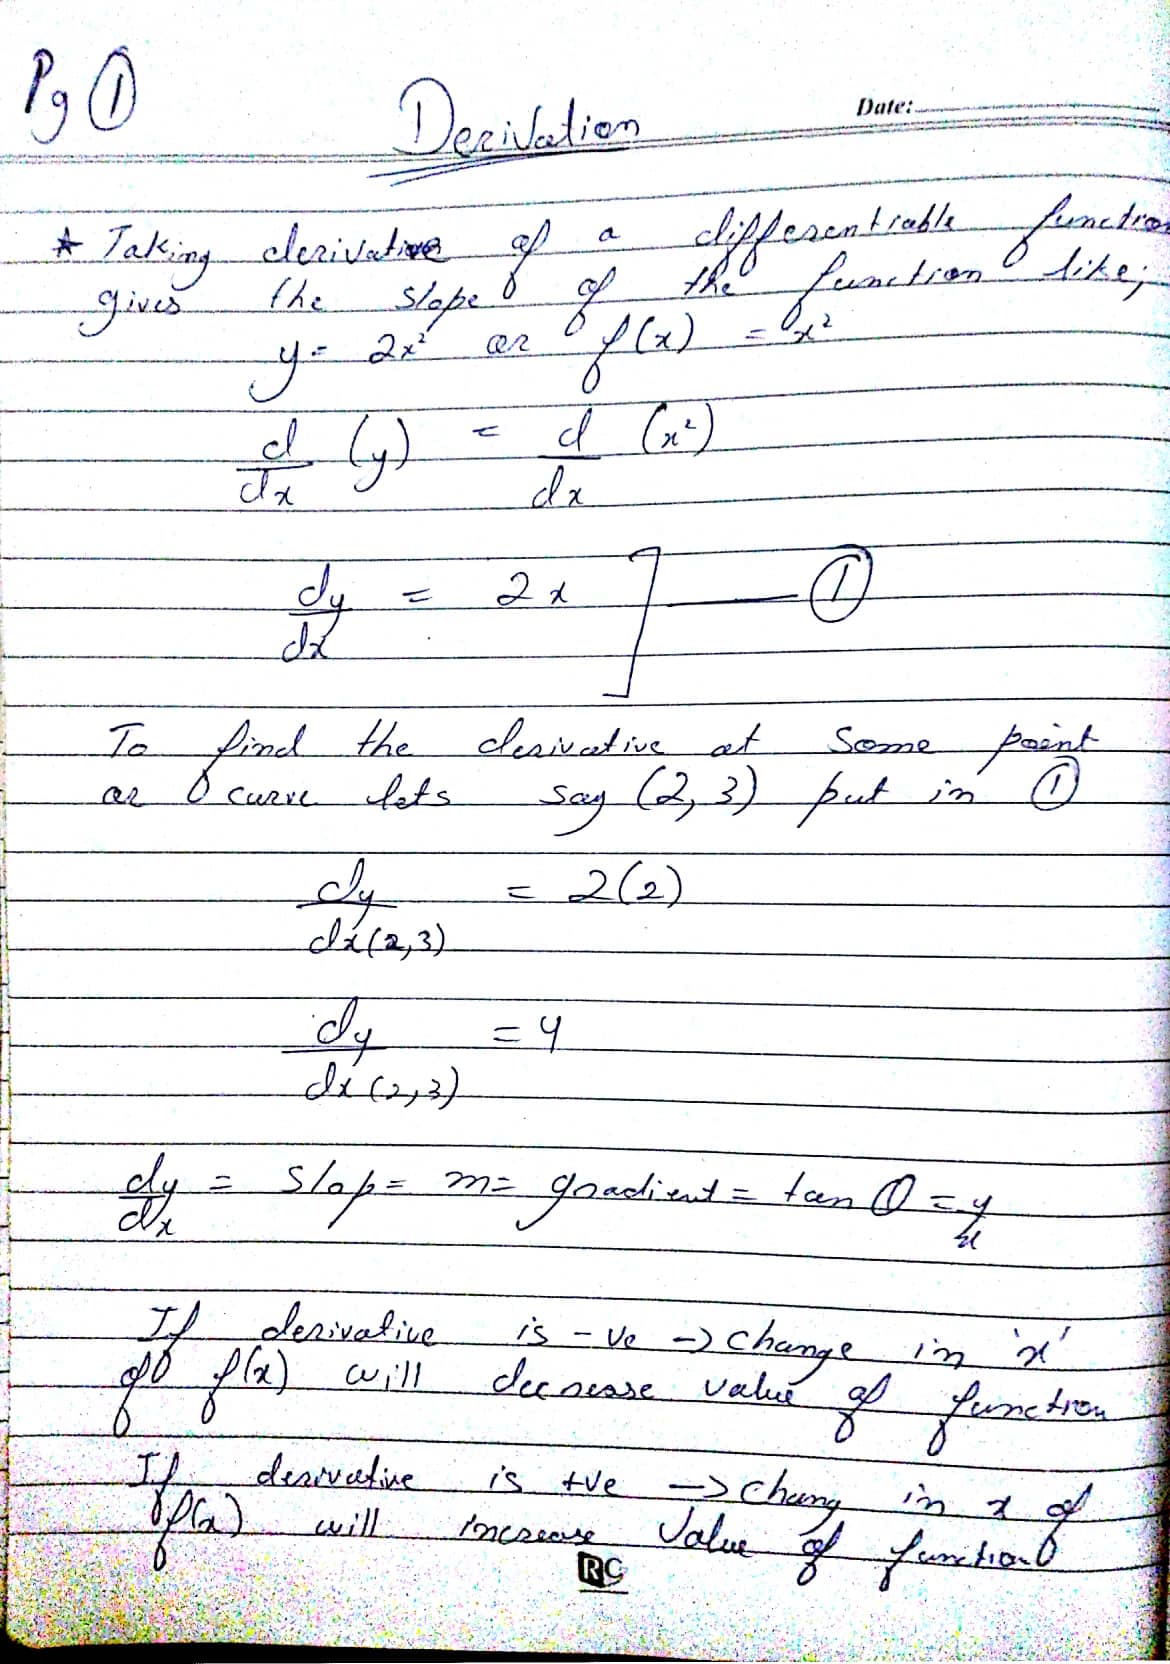 Pg ①
Derivation
Date:
* Taking derivative of a differentiable function
gives the slope of the function like;
y = 2x² or f(x) = x²
d/dx (y) = d/dx (x²)
dy/dx = 2x ] — ①
To find the derivative at some point
or curve lets say (2, 3) put in ①
dy/dx (2,3) = 2(2)
dy/dx (2,3) = 4
dy/dx = slop = m = gradient = tan θ = y/x
If derivative is -ve -> change in 'x'
of f(x) will decrease value of function
If derivative is +ve -> chang in x of
f(x) will increase value of function
RC